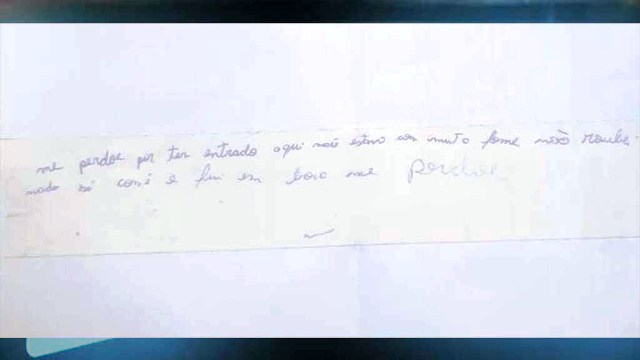 me perdoe por ter entrado aqui mais estava com muito fome não roubei
nada só comi e fui em boro me perdoe